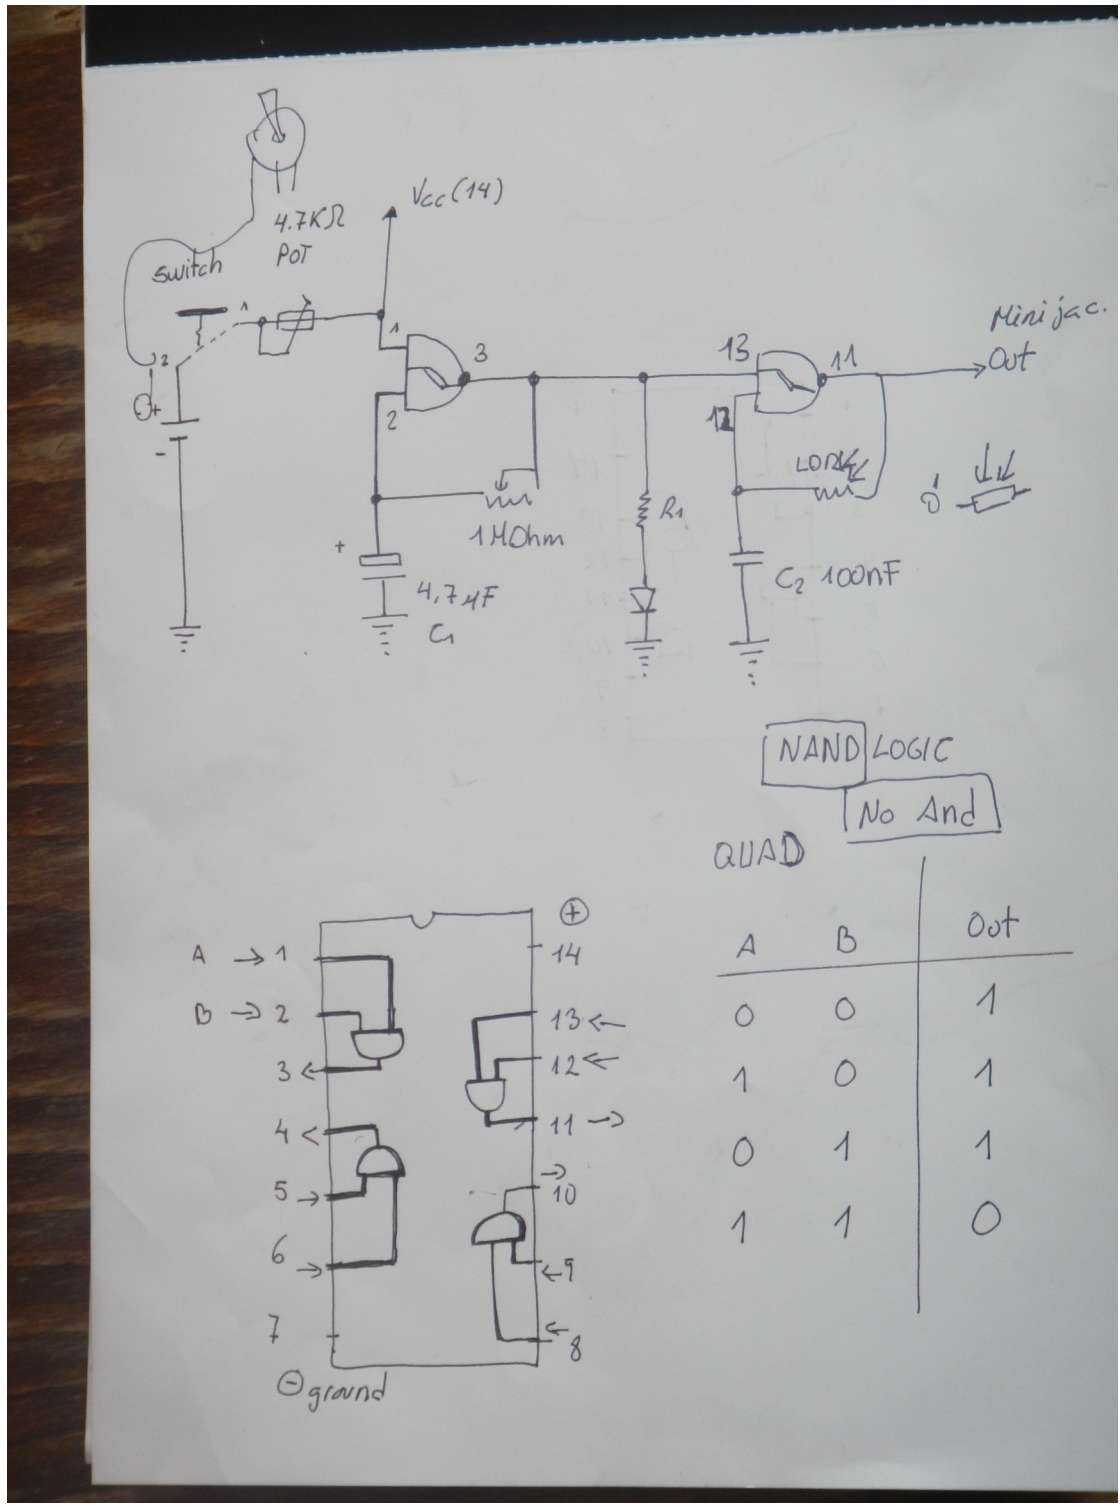 Vcc (14)
4.7KΩ
POT
switch
1
2
+
-
1
2
3
1MOhm
+
4,7µF
C1
R1
13
12
11
LDR
C2 100nF
Mini jac.
Out
ó
NAND LOGIC
No And
QUAD
A B Out
0 0 1
1 0 1
0 1 1
1 1 0
+
A → 1
B → 2
3 ←
4 <
5 →
6 →
7
- ground
14
13 ←
12 ←
11 →
→ 10
← 9
← 8